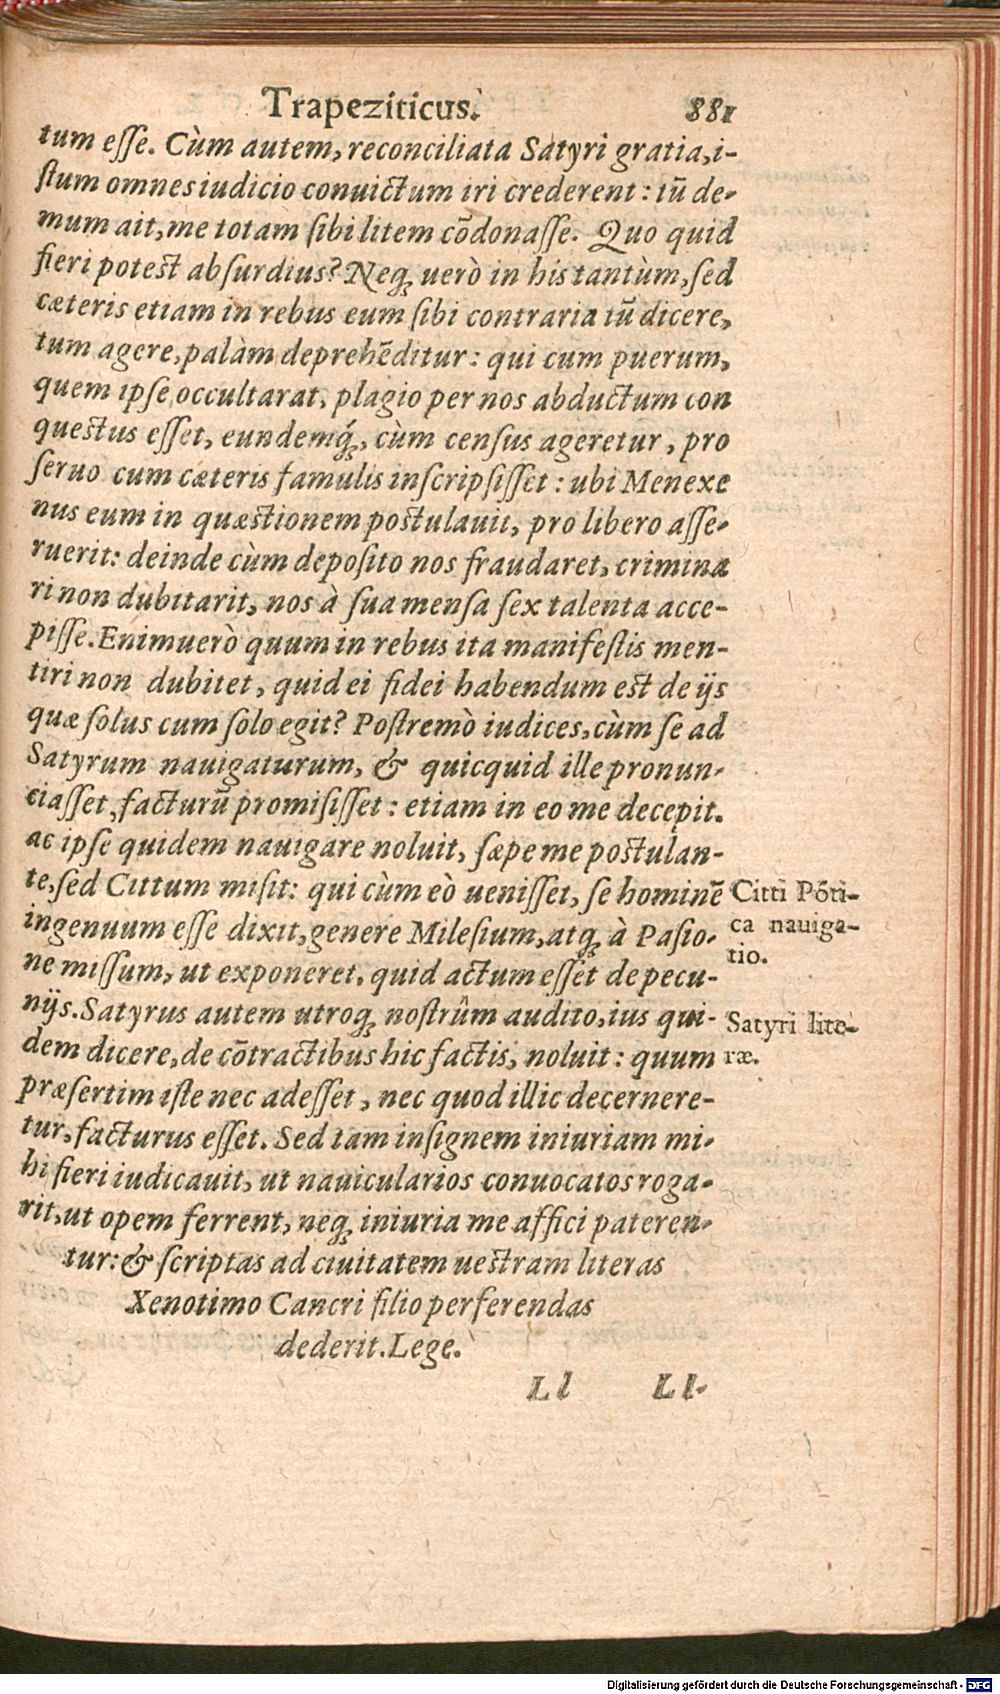 Trapeziticus. 881
tum esse. Cùm autem, reconciliata Satyri gratia, i-
stum omnes iudicio conuictum iri crederent: tũ de-
mum ait, me totam sibi litem cõdonasse. Quo quid
fieri potest absurdius? Neq; uerò in his tantùm, sed
cæteris etiam in rebus eum sibi contraria tũ dicere,
tum agere, palàm deprehẽditur: qui cum puerum,
quem ipse occultarat, plagio per nos abductum con
questus esset, eundemq́;, cùm census ageretur, pro
seruo cum cæteris famulis inscripsisset: ubi Menexe
nus eum in quæstionem postulauit, pro libero asse-
ruerit: deinde cùm deposito nos fraudaret, crimina
ri non dubitarit, nos à sua mensa sex talenta acce-
pisse. Enimuerò quum in rebus ita manifestis men-
tiri non dubitet, quid ei fidei habendum est de ijs
quæ solus cum solo egit? Postremò iudices, cùm se ad
Satyrum nauigaturum, & quicquid ille pronun-
ciasset, facturũ promisisset: etiam in eo me decepit.
ac ipse quidem nauigare noluit, sæpe me postulan-
te, sed Cittum misit: qui cùm eò uenisset, se hominẽ
ingenuum esse dixit, genere Milesium, atq; à Pasio-
ne missum, ut exponeret, quid actum esset de pecu-
nijs. Satyrus autem utroq; nostrûm audito, ius qui-
dem dicere, de cõtractibus hic factis, noluit: quum
præsertim iste nec adesset, nec quod illic decernere-
tur, facturus esset. Sed tam insignem iniuriam mi-
hi fieri iudicauit, ut nauicularios conuocatos roga-
rit, ut opem ferrent, neq; iniuria me affici pateren-
tur: & scriptas ad ciuitatem uestram literas
Xenotimo Cancri filio perferendas
dederit. Lege.
Ll Ll-
Citti Põti-
ca nauiga-
tio.
Satyri lite-
ræ.
Digitalisierung gefördert durch die Deutsche Forschungsgemeinschaft - DFG